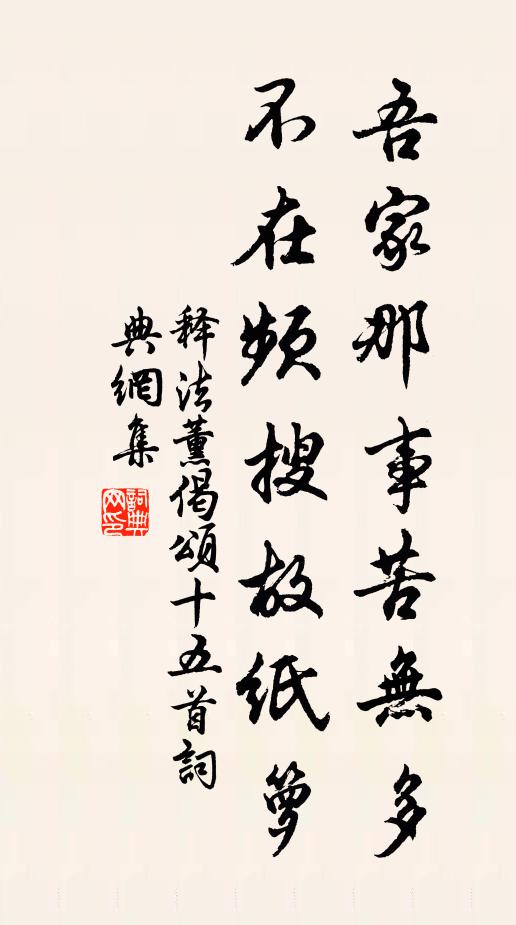 吾家那事苦無多
不在頻搜故紙籮
释法薰偈頌十五首詞
典網集
詞典网印